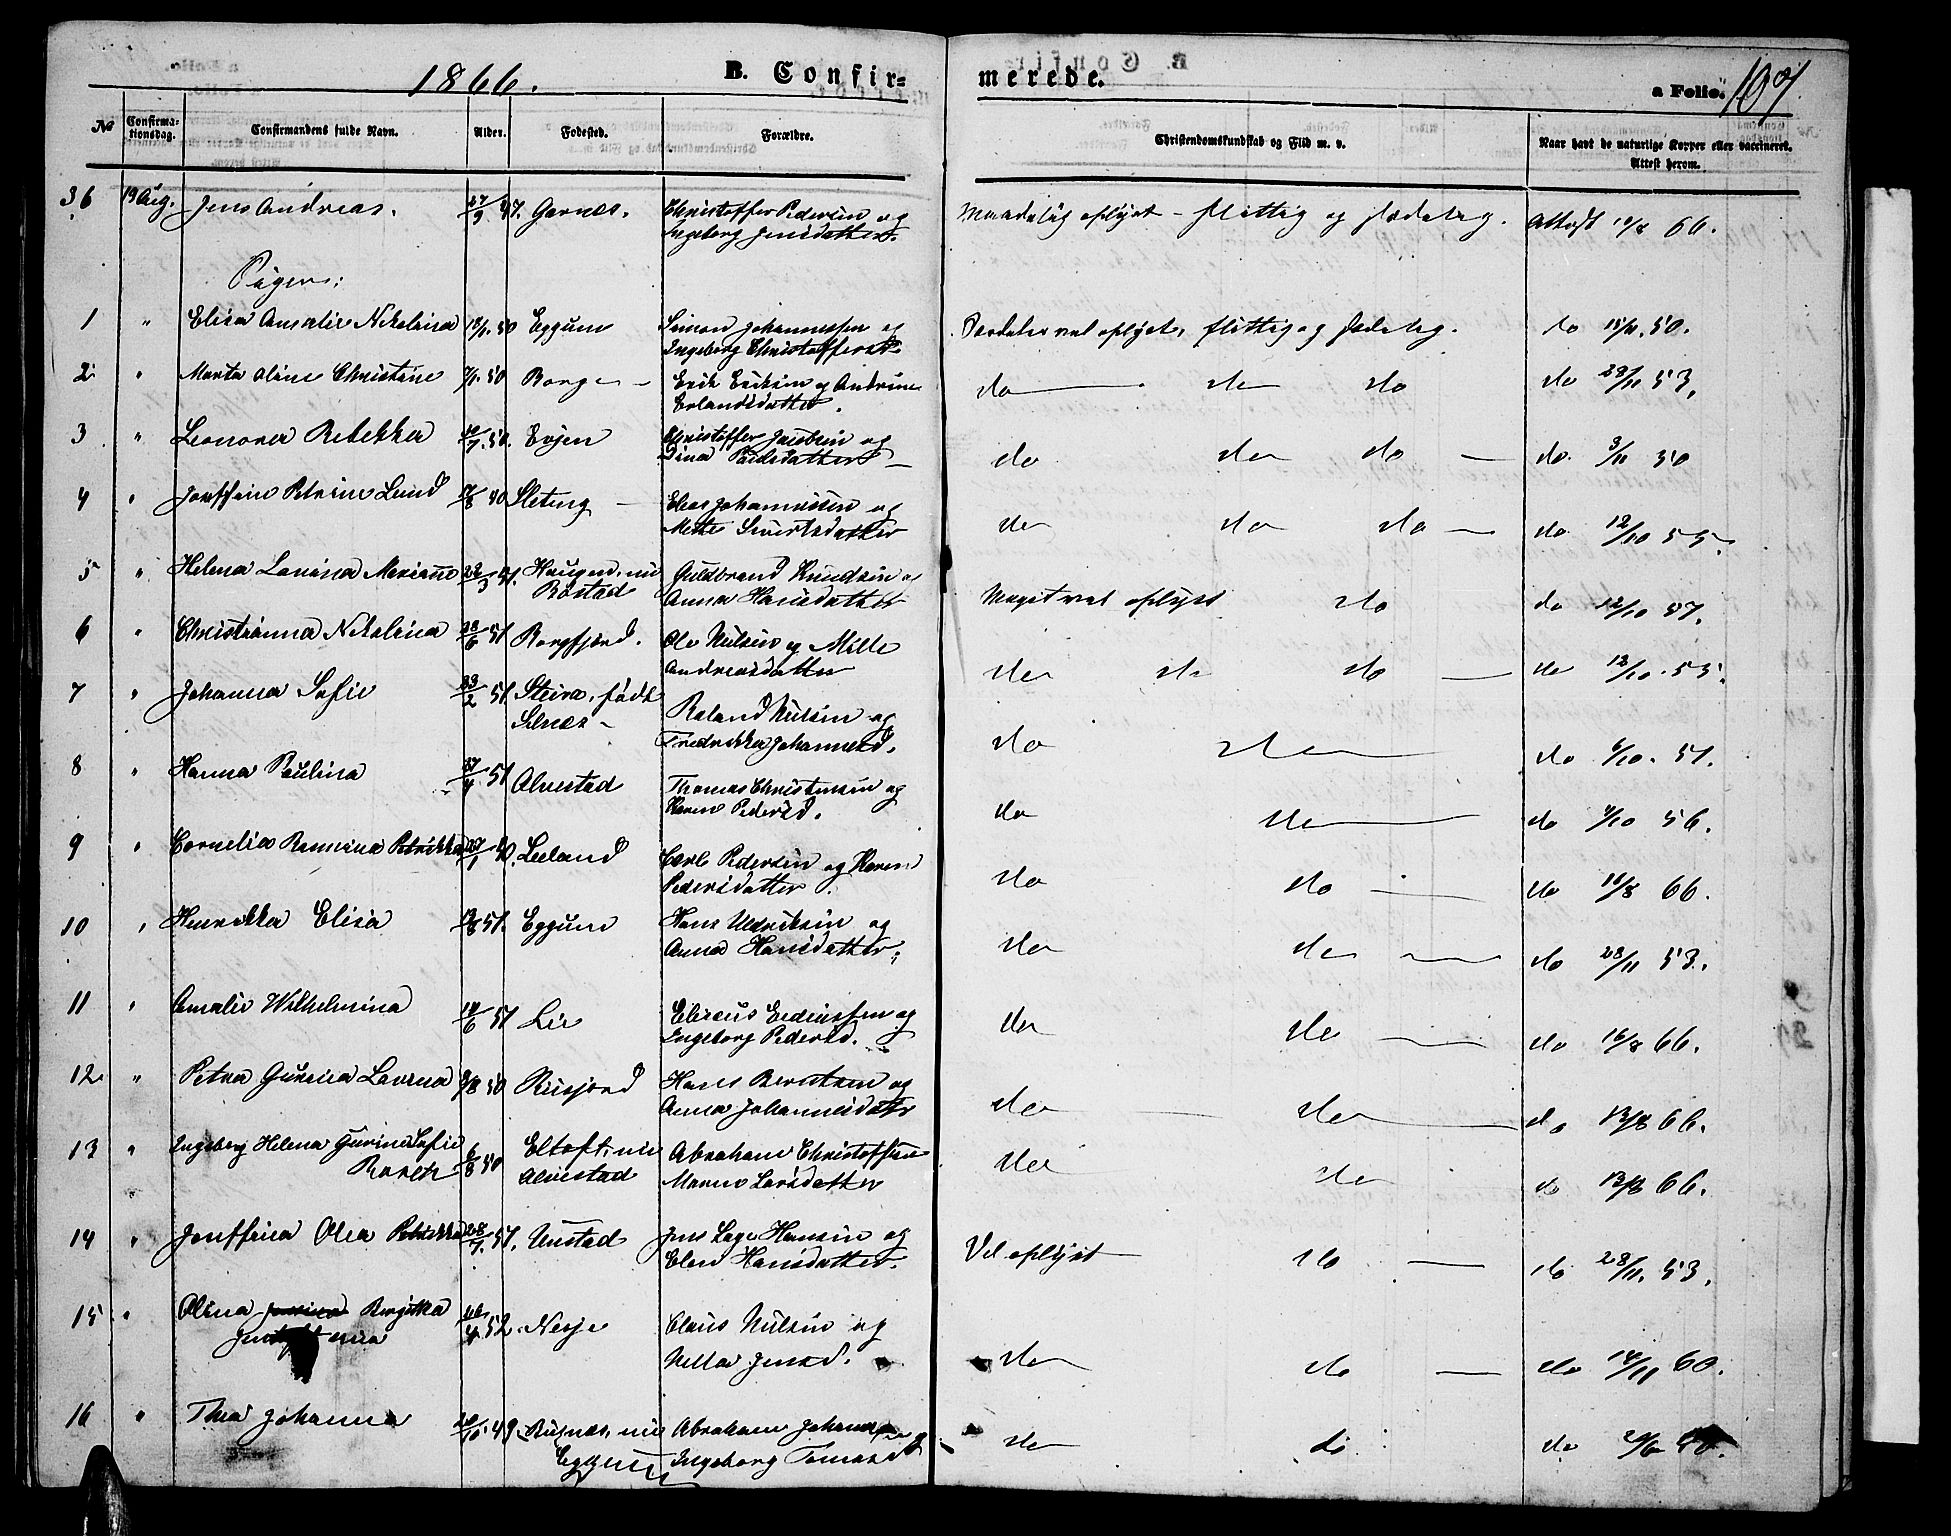 1866.
B. Confir=
merede.
a Folio. 107
№
Confirma-
tionsdag.
Confirmandens fulde Navn.
Alder.
Fødested.
Forældre.
Christendomskundskab og Flid m. v.
Naar havt de naturlige Kopper eller vaccineret.
Attest herom.
36 19 Aug. Jens Andreas. 27/9 47. Garnes. Christoffer Pedersen og
Ingeborg Jensdatter.
Maadelig oplyst - flittig og sædelig. Attest 18/8 66.
Piger:
1 " Elisa Amalie Nikolina 50 Eggum Simon Johannessen og
Ingeborg Christoffersd.
vel oplyst, flittig og sædelig. do 15/11. 50.
2 " Marta Oline Christine 7/1. 50 Borge - Erik Eriksen og Andrine
Erlandsdatter.
do do do do 28/11 53.
3 " Leonora Rebekka 50. Evjen Christoffer Jacobsen og
Dina Paulsdatter
do do do - do. 3/11 50
4 " Petrine Lund Sletteng - Elias Johannessen og
Mette Sivertsdatter
do do do - do 12/10 55.
5 " Helena Lavina Mariane 22/3 51. Haugen, nu
Bøstad
Guldbrand Knudsen og
Anna Hansdatter
Meget vel oplyst do do 12/10 57.
6 " Christianna Nikolina 28/6 51 Borgfjord. Ole Nilsen og Mille
Andreasdatter
do do do - do 12/10. 55.
7 " Johanna Sofie 23/2 51 Steira, født
Selnæs -
Roland Nilsen og
Fredrikka Johannesd.
do do do 6/10. 51.
8 " Hanna Paulina 27/4 51 Alvestad Thomas Christensen og
Karen Pedersd.
do do do 4/10 56.
9 " Cornelia Petrikka Leeland Carl Pedersen og Karen
Pedersdatter
do do - do 18/8 66.
10 " Henrikka Elisa 51. Eggum Hans Uldriksen og
Anna Hansdatter.
do do - do 28/11 53.
11 " Amalie Wilhelmina 14/6 51 Lie Elisæus og
Ingeborg Pedersd.
do do - do 16/8 66.
12 " Petra Gurina Lavina 50 Hans Berntsen og
Anna Johannesdatr
do - do - do 13/8 66.
13 " Ingeborg Helena Gurine Sofie 6/8 50 Eltoft, nu
Alvestad
Abraham Christoffersen
Maren Larsdatter
do do do 13/8 66.
14 " Olea Petrikka 28/7. 51. Unstad Jens Lage Hansen og
Elen Hansdatter.
Vel oplyst do - do 28/11. 53.
15 " Olina Bergitta 52. Nesje Claus Nilsen og
Jensd.
do do - do 14/11 60.
16 " Thea Johanna 49. nu
Eggum
Abraham
Ingeborg Tomasd
do do do